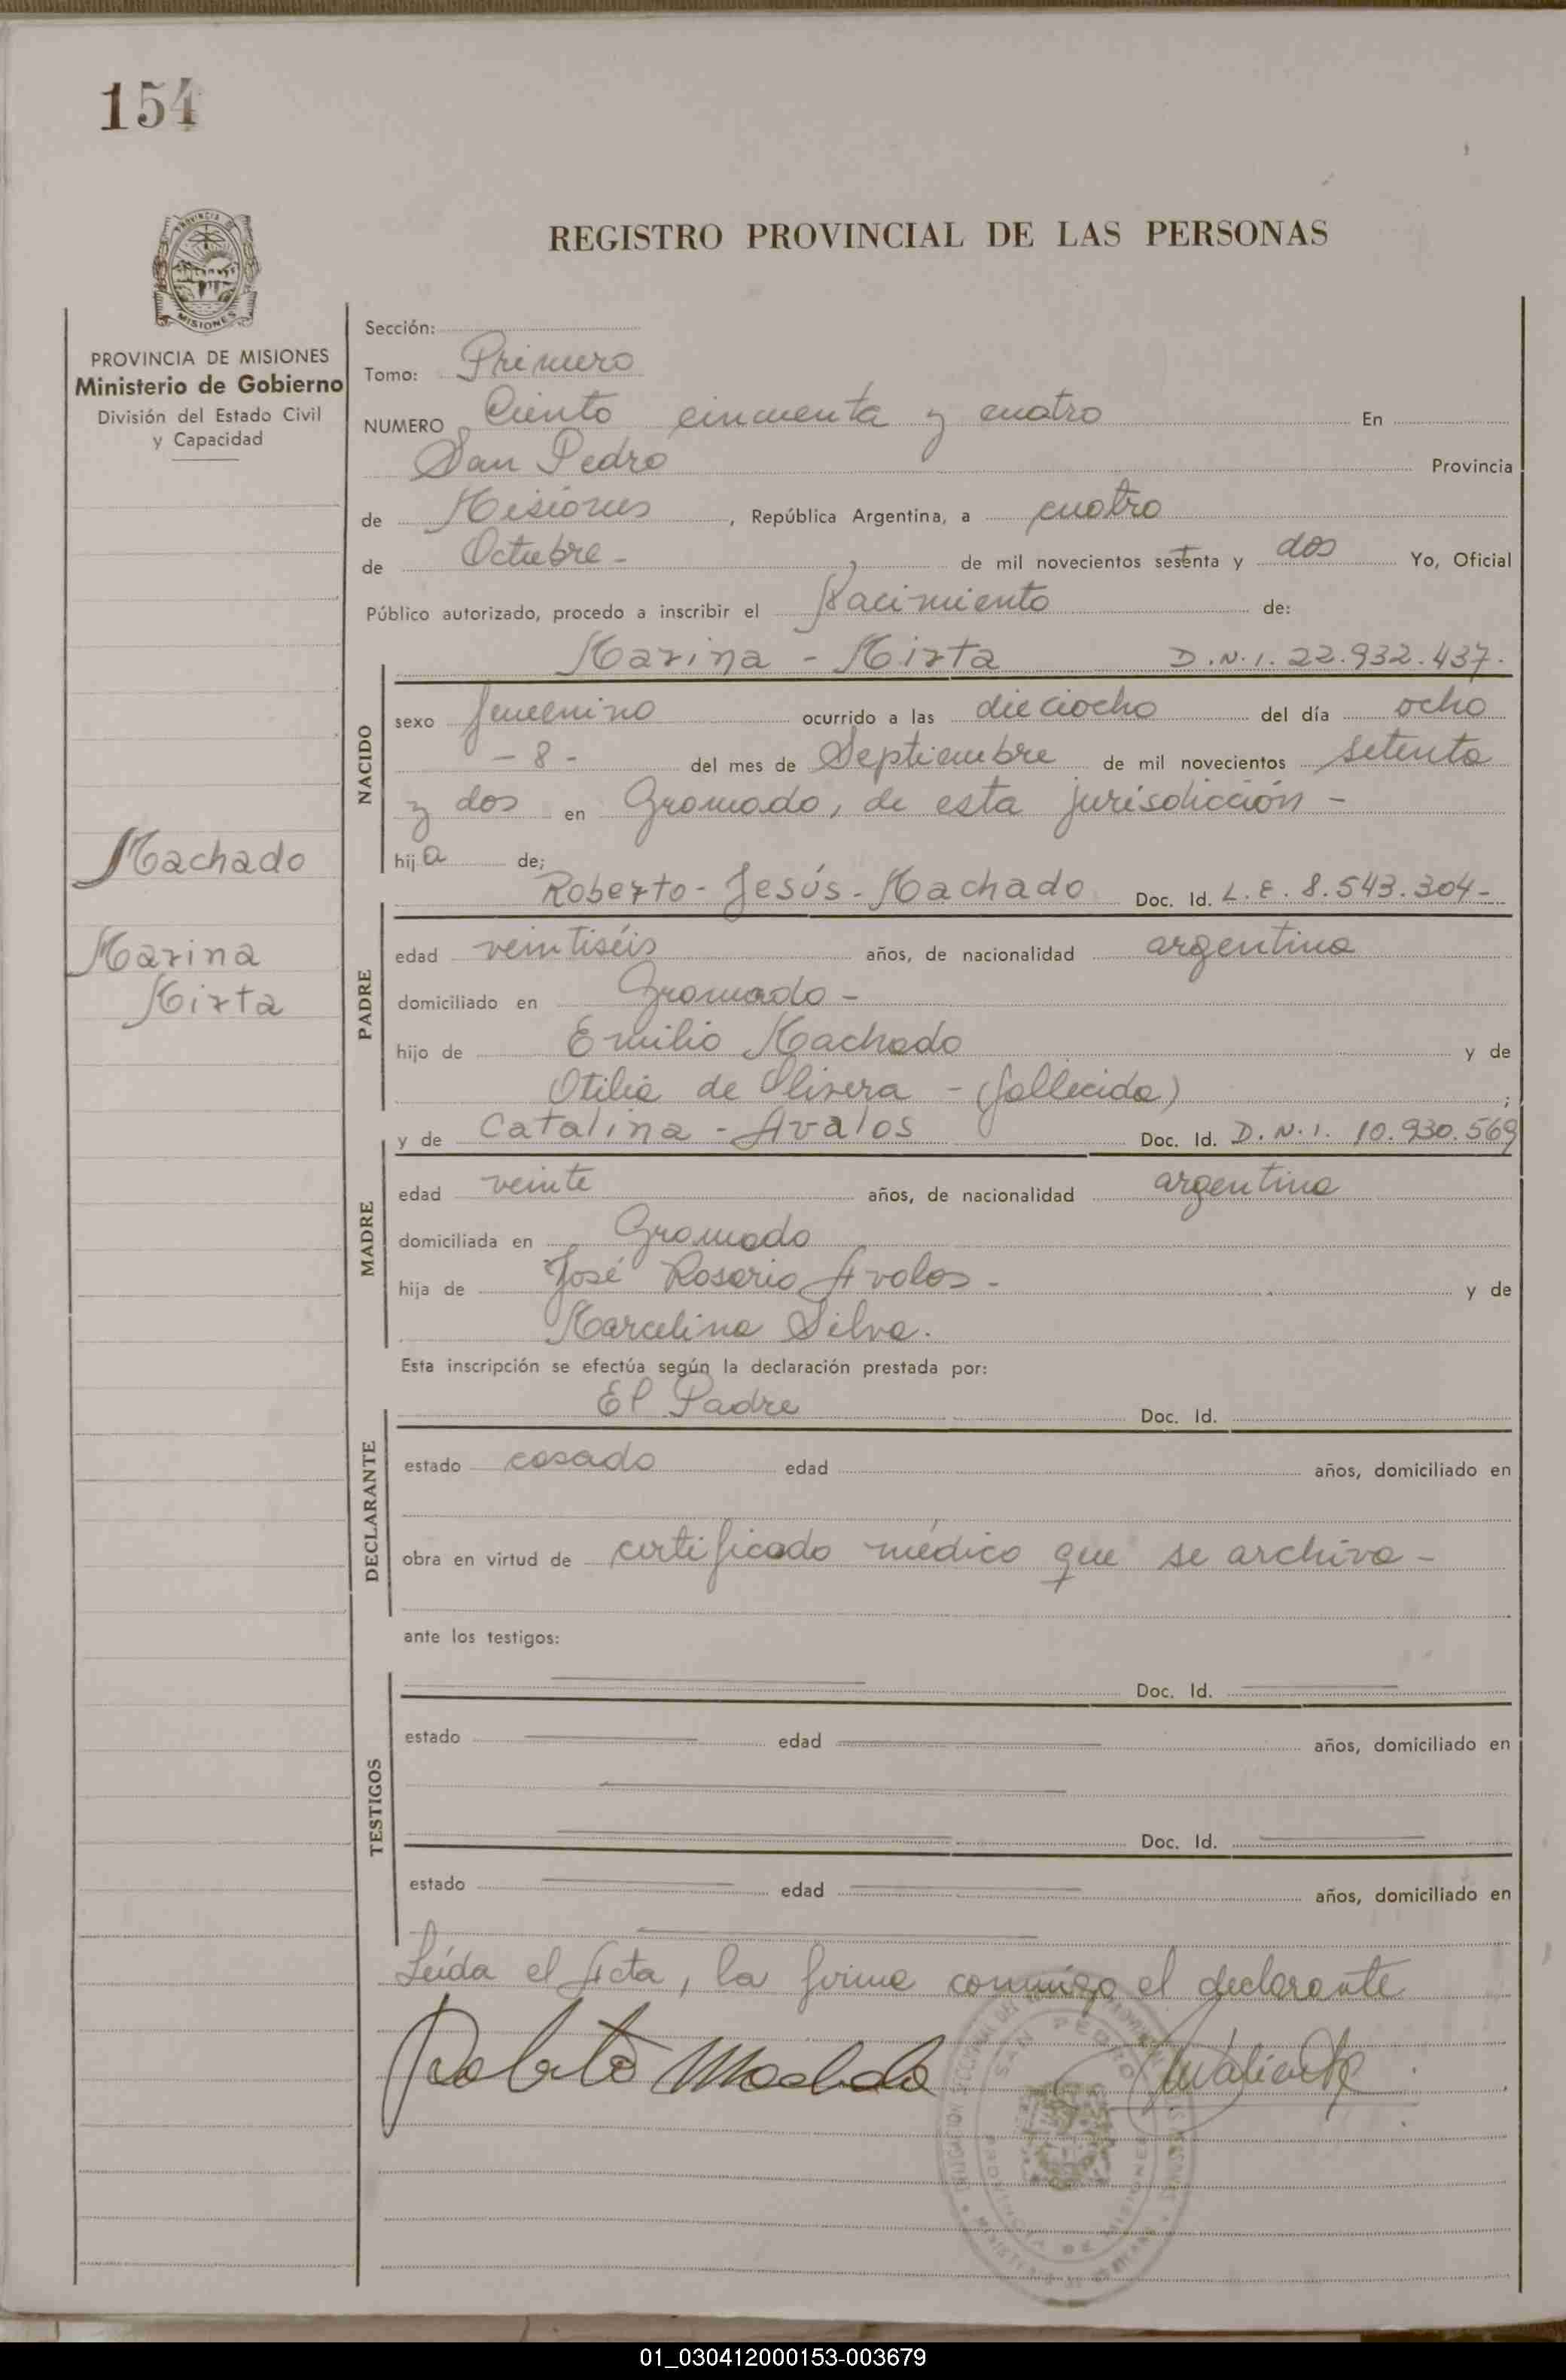 154
PROVINCIA DE
MISIONES
REGISTRO PROVINCIAL DE LAS PERSONAS
PROVINCIA DE MISIONES
Ministerio de Gobierno
División del Estado Civil
y Capacidad
Machado
Marina
Mirta
Sección:
Tomo: Primero
NUMERO Ciento cincuenta y cuatro En
San Pedro Provincia
de Misiones, República Argentina, a cuatro
de Octubre - de mil novecientos setenta y dos Yo, Oficial
Público autorizado, procedo a inscribir el Nacimiento de:
Marina - Mirta D.N.I. 22.932.437.
NACIDO
sexo femenino ocurrido a las dieciocho del día ocho
- 8 - del mes de Septiembre de mil novecientos setenta
y dos en Gramado, de esta jurisdicción -
hija de;
Roberto - Jesús - Machado Doc. Id. L.E. 8.543.304-
PADRE
edad veintiséis años, de nacionalidad argentina
domiciliado en Gramado -
hijo de Emilio Machado y de
Otilia de Olivera - (fallecida) ;
y de Catalina - Avalos Doc. Id. D.N.I. 10.930.569
MADRE
edad veinte años, de nacionalidad argentina
domiciliada en Gramado
hija de José Rosario Avalos - y de
Marcelina Silva.
Esta inscripción se efectúa según la declaración prestada por:
El Padre Doc. Id.
DECLARANTE
estado casado edad años, domiciliado en
obra en virtud de certificado médico que se archiva -
ante los testigos:
Doc. Id.
TESTIGOS
estado edad años, domiciliado en
Doc. Id.
estado edad años, domiciliado en
Leída el Acta, la firma conmigo el declarante
Roberto Machado
SAN PEDRO
PROVINCIA DE MISIONES
01_030412000153-003679